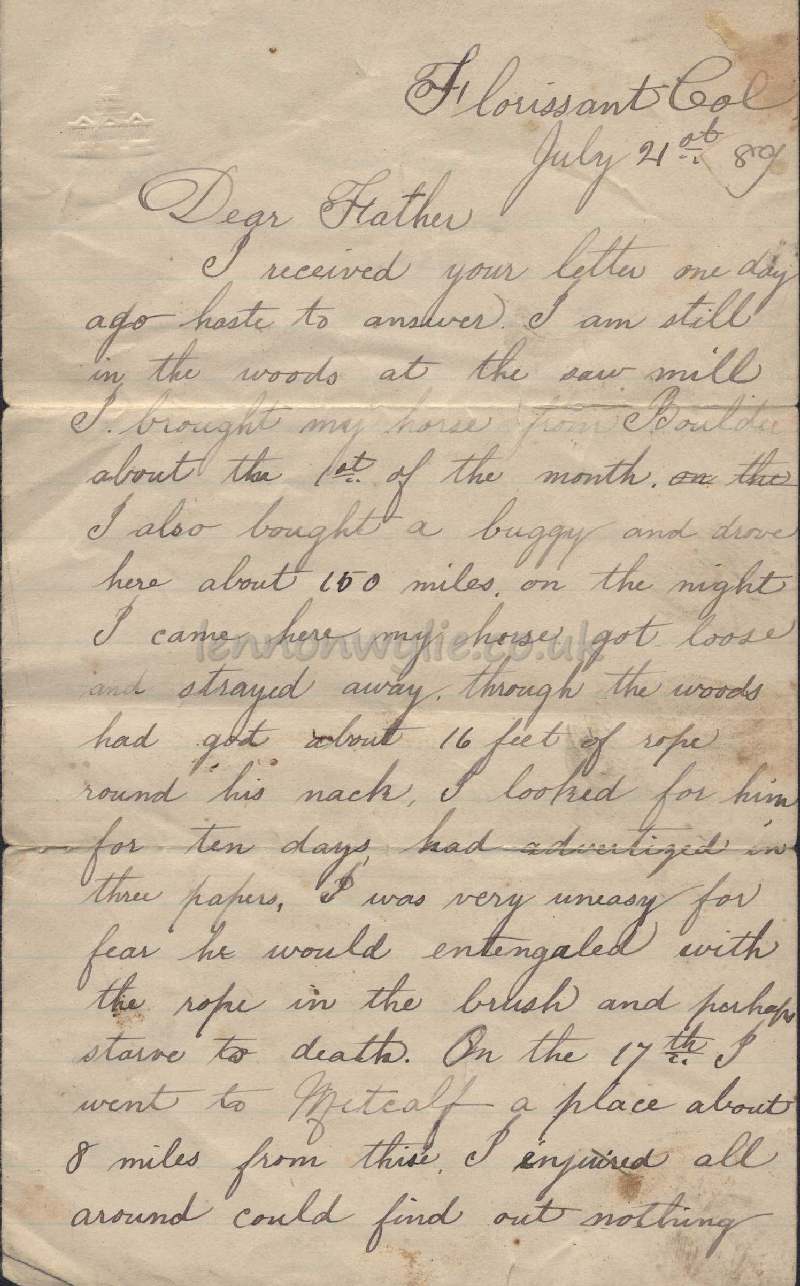 Florissant Col,
July 21st 89
Dear Father
I received your letter one day
ago haste to answer. I am still
in the woods at the saw mill
I brought my horse from Boulder
about the 1st of the month. on the
I also bought a buggy and drove
here about 150 miles. on the night
I came here my horse got loose
lennonwylie.co.uk
and strayed away. through the woods
had got about 16 feet of rope
round his nack, I looked for him
for ten days, had advertized in
three papers, I was very uneasy for
fear he would entengaled with
the rope in the brush and perhaps
starve to death. On the 17th I
went to Metcalf a place about
8 miles from this. I enjuired all
around could find out nothing